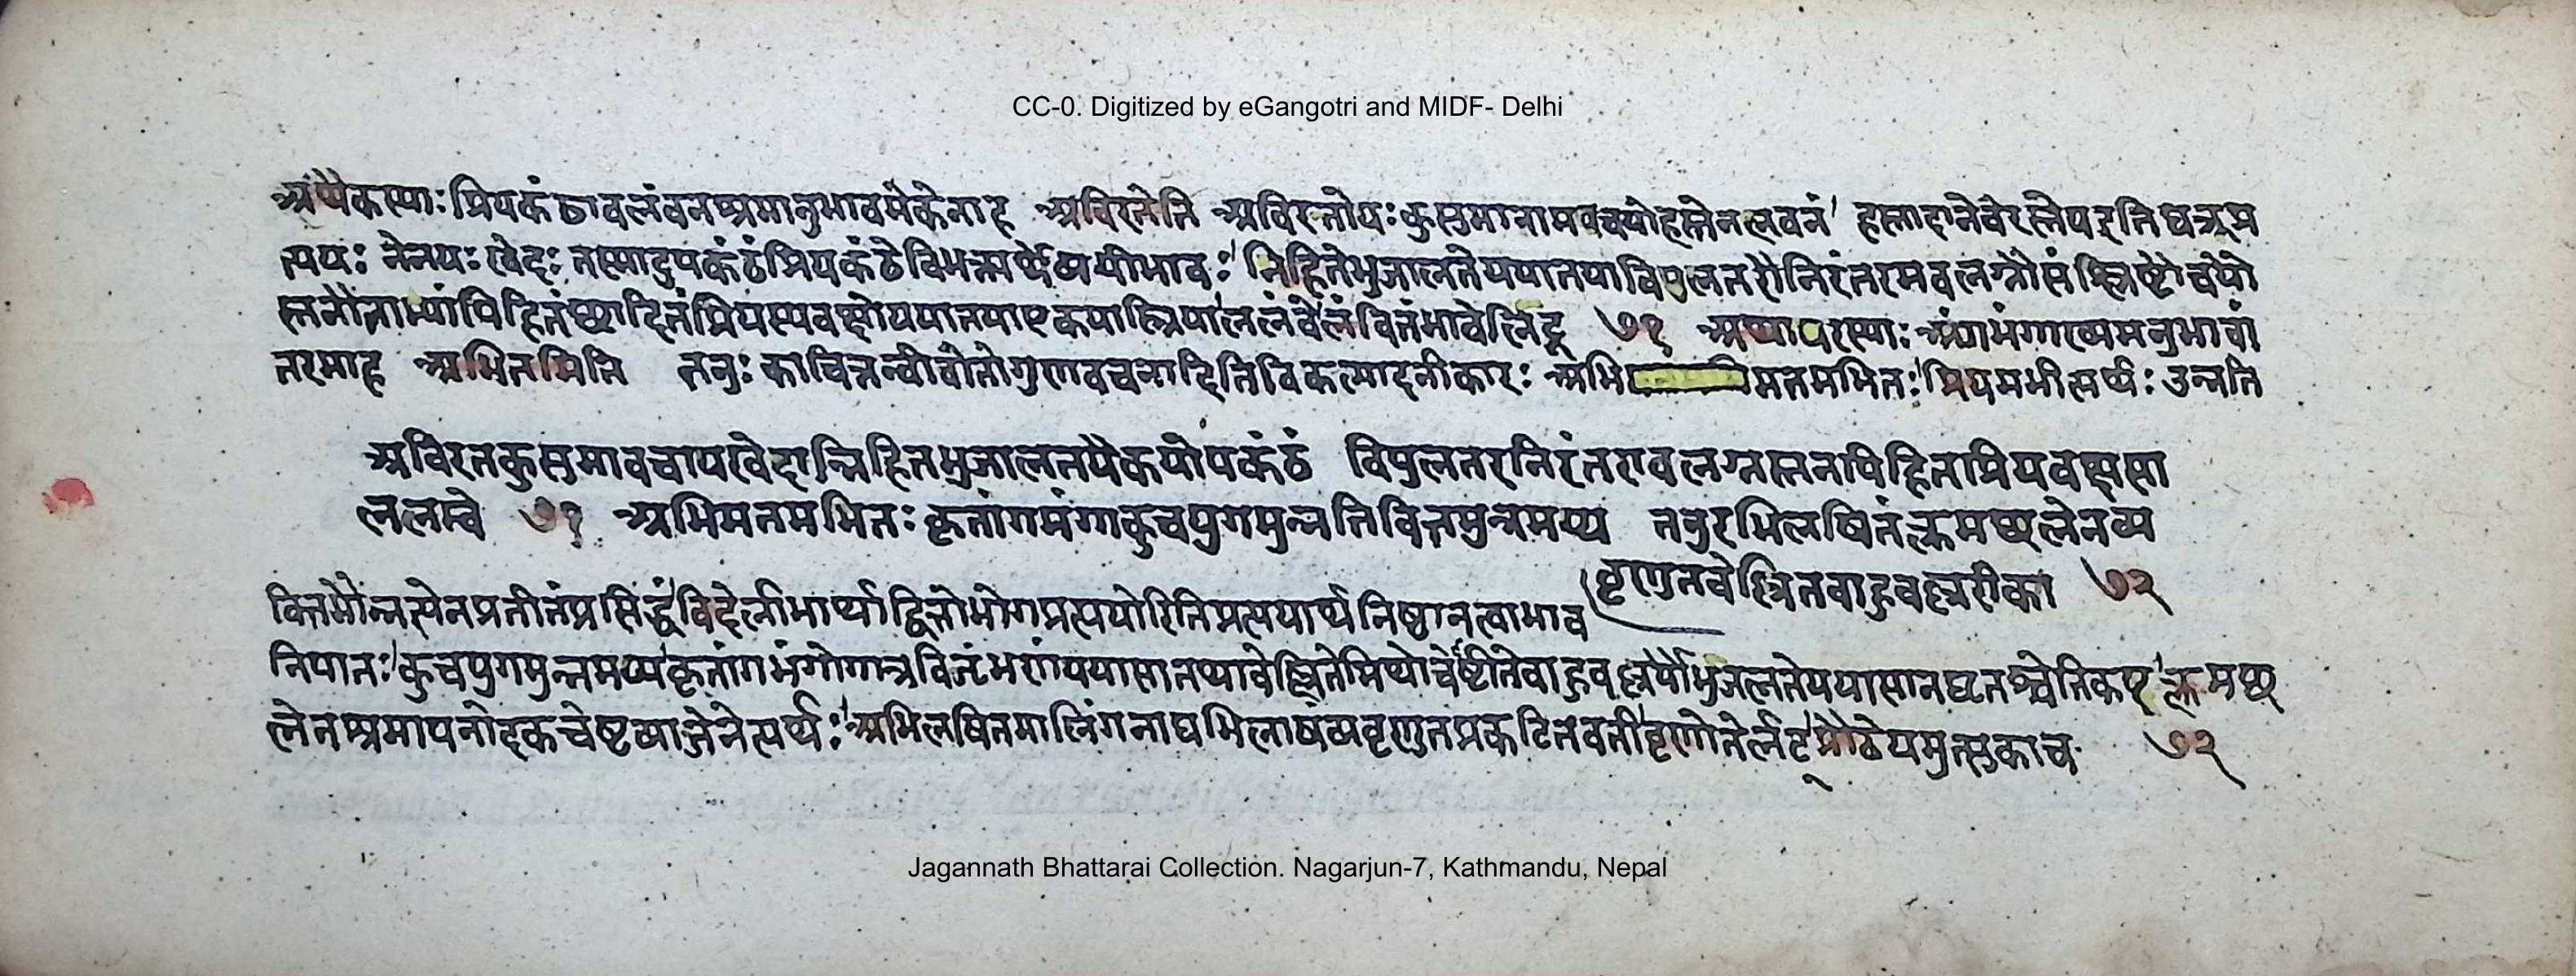 CC-0. Digitized by eGangotri and MIDF- Delhi
अथैकस्याः प्रियकंठावलंबनश्रमानुभावमेकेनाह अविरतेति अविरतो यः कुसुमानामवचयो हस्तेन लवनं हस्तादाने चेरस्तेय इति घञ्प्र
त्ययः तेन यः खेदः तस्मादुपकंठं प्रियकंठे विभक्त्यर्थेव्ययीभावः निहिते भुजालते यया तया विपुलतरौ निरंतरमवलग्नौ संश्लिष्टौ च यौ
स्तनौ ताभ्यां पिहितं छादितं प्रियस्य वक्षो यया तया एकया स्त्रिया ललंबे लंबितं भावे लिट् ७१ अथापरस्याः अंगभंगाख्यमनुभावां
तरमाह अभिमतमिति तनुः काचित्तन्वी वोतो गुणवचनादिति विकल्पादनीकारः अभिमतमभितः प्रियमभीत्यर्थः उन्नति
अविरतकुसुमावचायखेदान्निहितभुजालतयैकयोपकंठं विपुलतरनिरंतरावलग्नस्तनपिहितप्रियवक्षसा
ललम्बे ७१ अभिमतमभितः कृतांगभंगा कुचयुगमुन्नतिवित्तमुन्नमय्य तनुरभिलषितं क्लमछलेन व्य
वृणुत वेल्लितबाहुवल्लरीका ७२
वित्तमौन्नत्येन प्रतीतं प्रसिद्धं विदेर्लाभार्थाद्वित्तो भोगप्रत्यययोरिति प्रत्ययार्थे निष्ठानत्वाभाव
निपातः कुचयुगमुन्नमय्य कृतांगभंगो गात्रविजृंभणं यया सा तथा वेल्लिते मिथो वेष्टिते बाहुवल्लर्यौ भुजलते यया सा नद्यृतश्चेति कप् क्लमछ
लेन श्रमापनोदकचेष्टाव्याजेनेत्यर्थः अभिलषितमालिंगनाद्यभिलाषं व्यवृणुत प्रकटितवती वृणोतेर्लट् प्रौढेयमुत्सुका च ७२
Jagannath Bhattarai Collection. Nagarjun-7, Kathmandu, Nepal